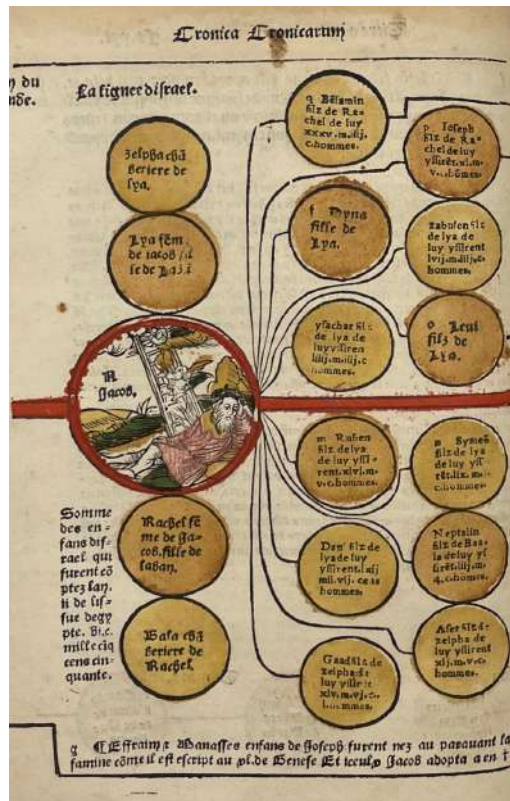 Cronica Cronicarum
n du
nde.
La lignee disrael.
zelpha chā
beriere de
lya.
Lya fēm
de iacob fil
le de
A
Jacob.
Rachel fē
me de Ja-
cob. fille de
laban.
Bala chā
beriere de
Rachel.
Somme
des en-
fans dis-
rael qui
furent cō
ptez lan.
ii de liss-
sue degy
pte. vi.c.
mille ciq
cens cin-
quante.
q Bēiamin
filz de Ra-
chel de luy
xxxv.m.iiij.
c.hommes.
p Ioseph
filz de Ra-
chel de luy
yssirēt.xl.m.
v.c.hōmes.
f Dyna
fille de
Lya.
zabulon filz
de lya de
luy yssirent
lvij.m.iiij.c.
hommes.
ysachar filz
de lya de
luy yssiren
liiij.m.iiij.c
hommes.
o Leui
filz de
Lya.
m Ruben
filz de lya
de luy yssi-
rent.xlvi.m.
v.c.hommes.
n Symeō
filz de lya
de luy yss-
rēt.lix.m.
c.hommes.
Dan filz de
lya de luy
yssirent.lxij
mil.vij.cens
hommes.
Neptalin
filz de Baa-
la de luy ys
sirēt.liij.m.
4.c.hommes.
Gaad filz de
zelpha de
luy yssirēt
xlv.m.vj.c.
hommes.
Aser filz de
zelpha de
luy yssirent
xlj.m.v.c.
hommes.
g ¶ Effraim et Manasses enfans de Joseph furent nez au parauant la
famine cōme il est escript au .pl. de Genese Et iceulx Jacob adopta a en